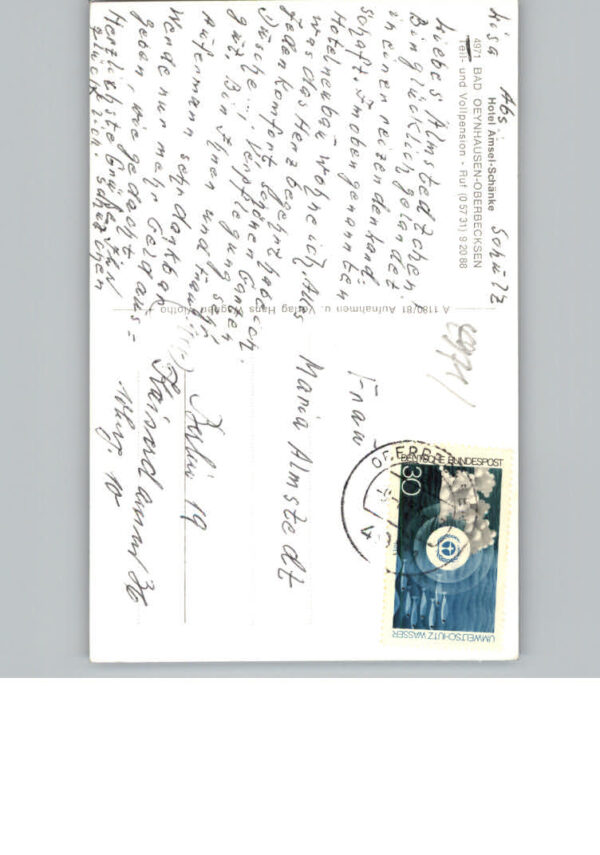 Abs.
Lisa Schulz
Hotel Amsel-Schänke
4971 BAD OEYNHAUSEN-OBERBECKSEN
Teil- und Vollpension · Ruf (0 57 31) 9 20 88
Liebes Almstedtchen!
Bin glücklich gelandet
in einer reizenden Land=
schaft. Im oben genannten
Hotelneubau wohne ich, Alles
was das Herz begehrt habe ich.
Jeden Komfort, schönen Garten
Dusche Verpflegung sehr
gut. Bin Ihnen und Frau
Aufermann sehr dankbar
Werde nur mehr Geld aus=
geben, wie gedacht.
Herzlichste Grüße Ihr
Schulzchen
A 1180/81 Aufnahmen u. Verlag Hans Wagner Vlotho
4971
Frau
Maria Almstedt
Berlin 19
Kaiserdamm 36
Whg. 10
DEUTSCHE BUNDESPOST
30
UMWELTSCHUTZ WASSER